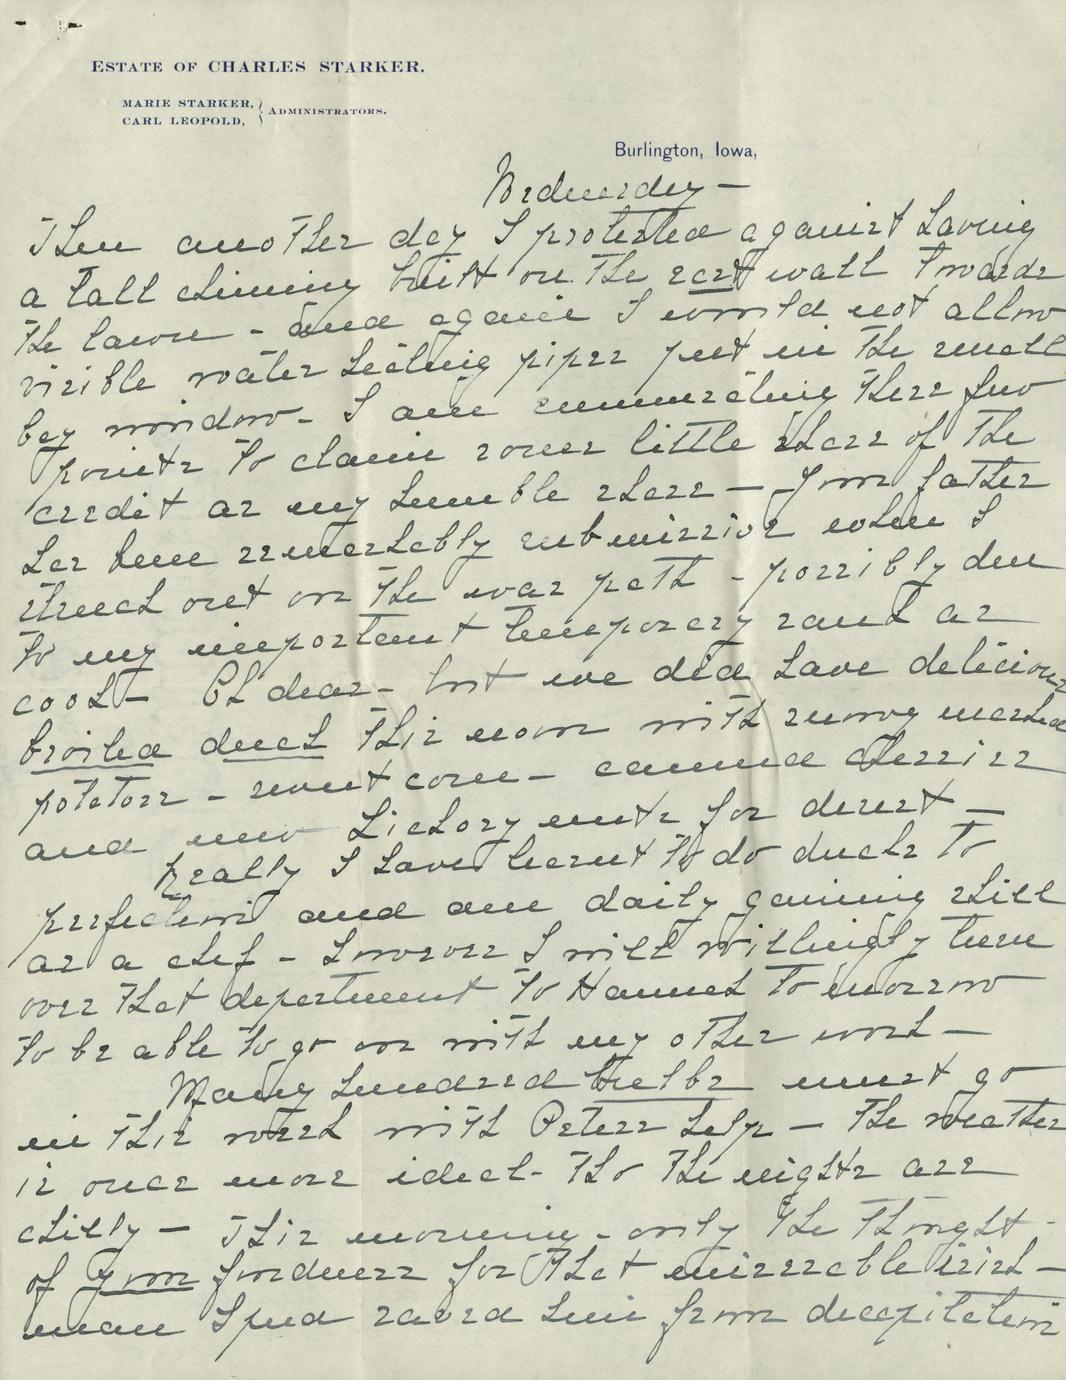 ESTATE OF CHARLES STARKER.
MARIE STARKER, } ADMINISTRATORS.
CARL LEOPOLD,
Burlington, Iowa,
Wednesday –
Then another day I protested against having
a tall chimney built on the east wall towards
the lawn – and again I would not allow
visible water heating pipes put in the small
bay window – I am enumerating these few
points to claim some little share of the
credit as my humble share – Your father
has been remarkably submissive when I
struck out on the war path – possibly due
to my important temporary rank as
cook – Oh dear – but we did have delicious
broiled duck this noon with snowy mashed
potatoes – sweet corn – canned cherries
and new hickory nuts for desert –
Really I have learnt to do ducks to
perfection and am daily gaining skill
as a chef – however I will willingly turn
over that department to Hannah tomorrow
to be able to go on with my other work –
Many hundred bulbs must go
in this week with Peters help – the weather
is once more ideal – tho the nights are
chilly – This morning – only the thought –
of your fondness for that miserable irish –
man Spud saved him from decapitation